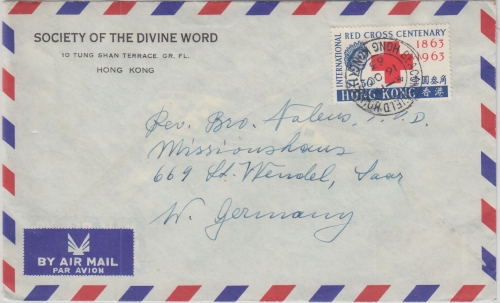 SOCIETY OF THE DIVINE WORD
10 TUNG SHAN TERRACE GR. FL.
HONG KONG
INTERNATIONAL
RED CROSS CENTENARY
1863
1963
HONG KONG 香港
Rev. Bro. Nabers, S.V.D.
Missionshaus
669 St. Wendel, Saar
W. Germany
BY AIR MAIL
PAR AVION